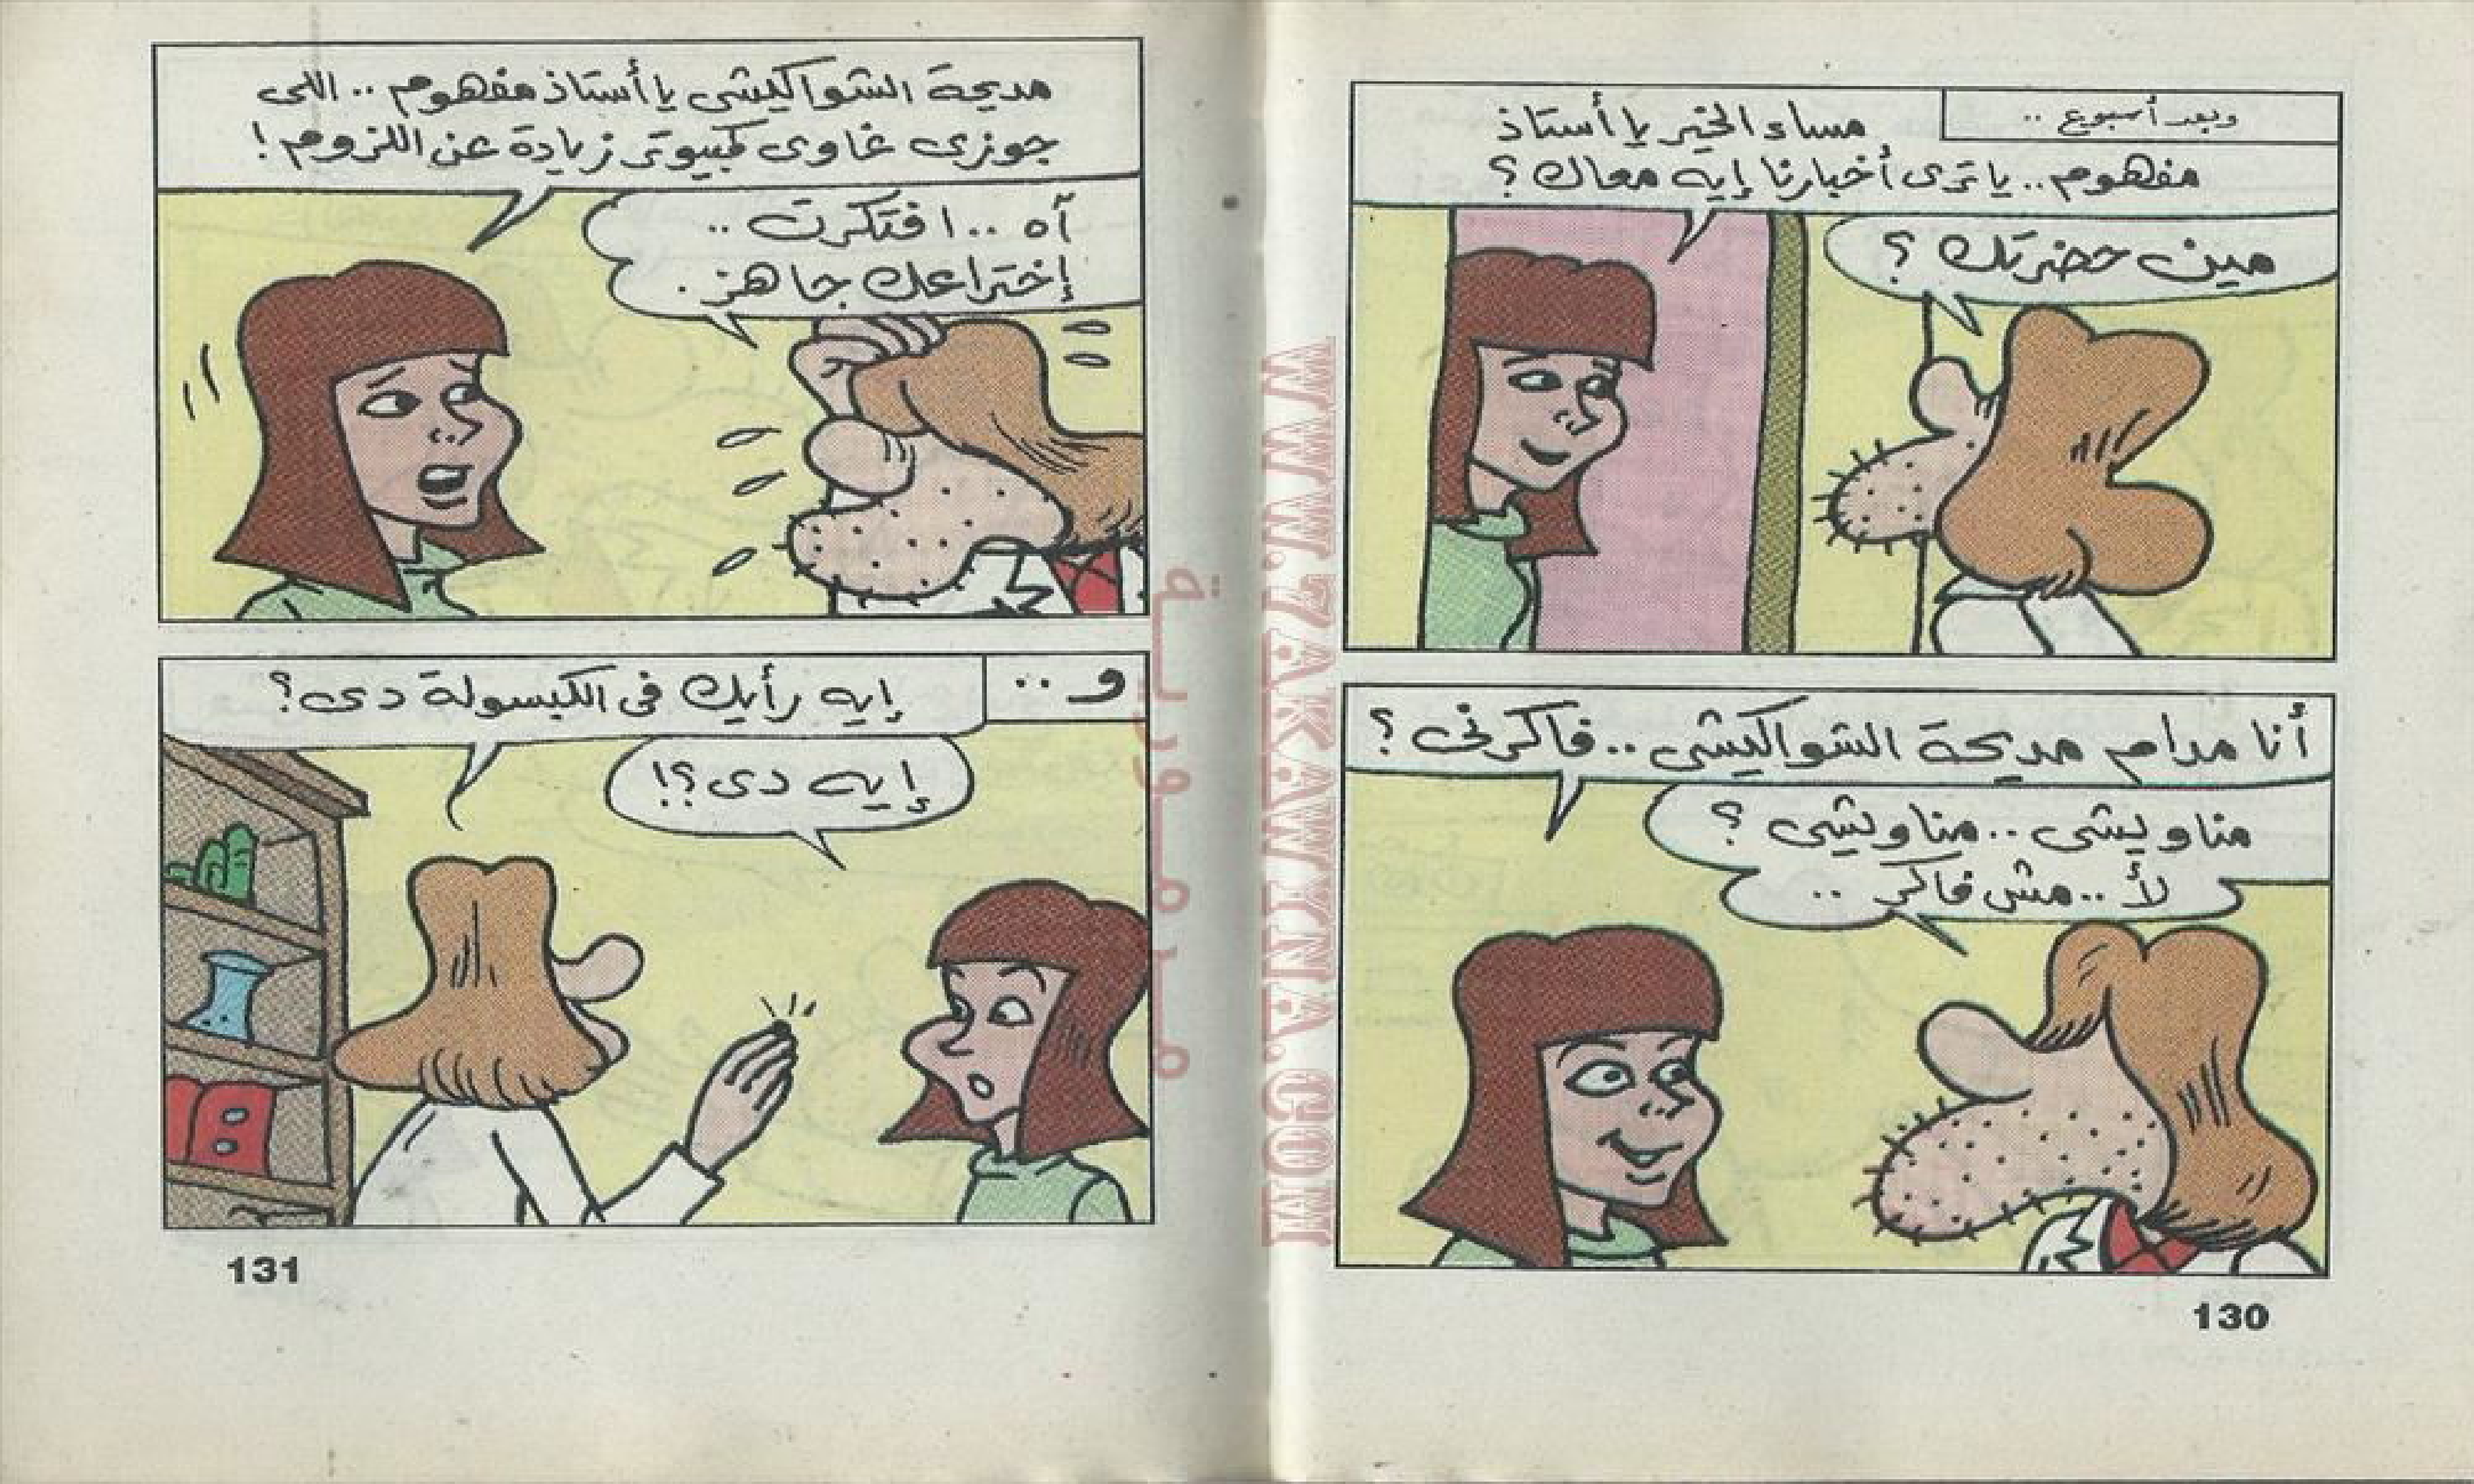 وبعد أسبوع ..
مساء الخير يا أستاذ
مفهوم.. يا ترى أخبارنا إيه معاك ؟
مين حضرتك ؟
أنا مدام مديحة الشواكيشى .. فاكرنى ؟
مناويشى .. مناويشى ؟
لأ .. مش فاكر ..
130
مديحة الشواكيشى يا أستاذ مفهوم .. اللى
جوزى غاوى كمبيوتر زيادة عن اللزوم !
آه .. افتكرت ..
إختراعك جاهز .
و ..
إيه رأيك فى الكبسولة دى ؟
إيه دى ؟!
131
WWW.7AKAWINA.COM